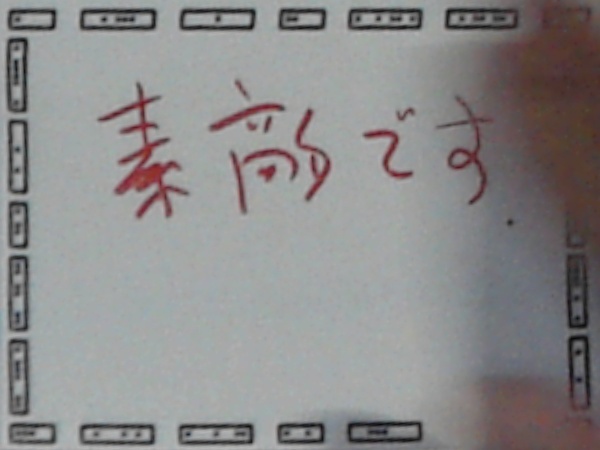 素敵です